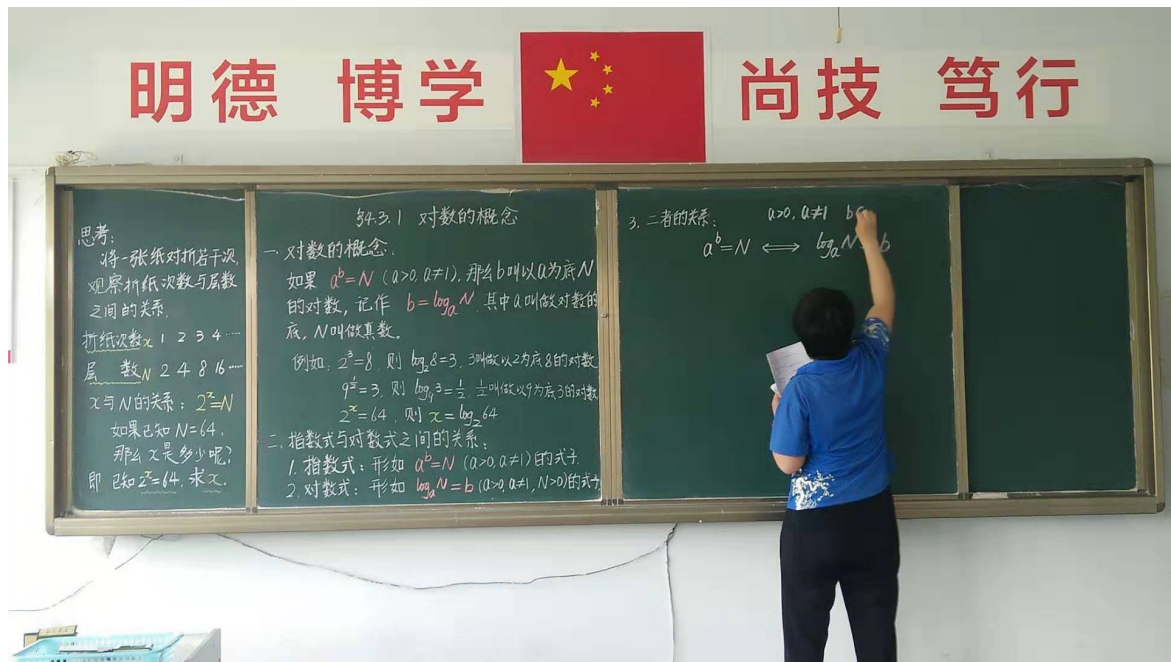 明德 博学 尚技 笃行
思考:
将一张纸对折若干次,
观察折纸次数与层数
之间的关系.
折纸次数x 1 2 3 4 ……
层 数N 2 4 8 16 ……
x与N的关系: 2^x=N
如果已知N=64,
那么x是多少呢?
即 已知2^x=64, 求x.
§4.3.1 对数的概念
一、对数的概念:
如果 a^b=N (a>0,a≠1),那么b叫以a为底N
的对数, 记作 b=log_a N. 其中a叫做对数的
底, N叫做真数。
例如: 2^3=8, 则 log_2 8=3, 3叫做以2为底8的对数
9^{1/2}=3, 则 log_9 3=1/2, 1/2叫做以9为底3的对数
2^x=64, 则 x=log_2 64
二、指数式与对数式之间的关系:
1. 指数式: 形如 a^b=N (a>0,a≠1)的式子.
2. 对数式: 形如 log_a N=b (a>0,a≠1,N>0)的式子
3. 二者的关系: a>0, a≠1 b
a^b=N ⟺ log_a N= b